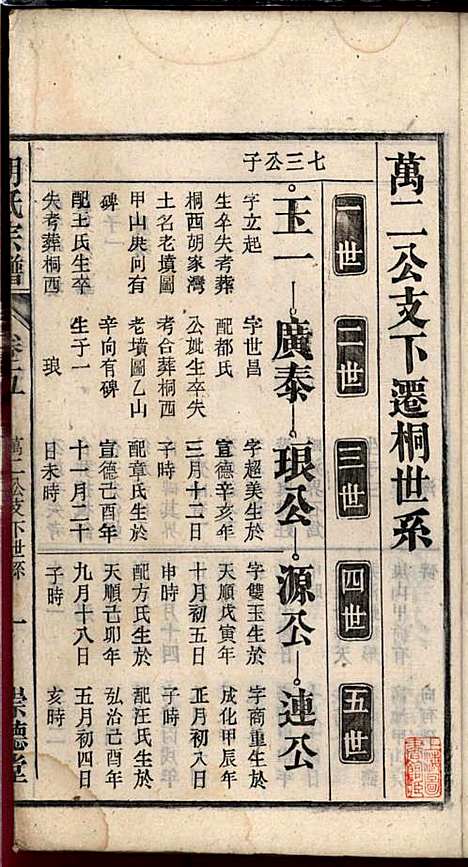 萬二公支下遷桐世系
一世
二世
三世
四世
五世
七三公子
玉一
廣泰
琅公
源公
連公
字立起
生卒失考葬
桐西胡家灣
土名老墳圖
甲山庚向有
碑
配王氏生卒
失考葬桐西
字世昌
配都氏
公妣生卒失
考合葬桐西
老墳圖乙山
辛向有碑
生子一
琅
字超美生於
宣德辛亥年
三月十二日
子時
配章氏生於
宣德己酉年
十一月二十
日未時
字雙玉生於
天順戊寅年
十月初五日
申時
配方氏生於
天順己卯年
九月十八日
子時 一
字商重生於
成化甲辰年
正月初日
子時
配汪氏生於
弘治己酉年
五月初四日
亥時 二
胡氏宗譜
卷之五
萬二公支下世系
一
崇德堂